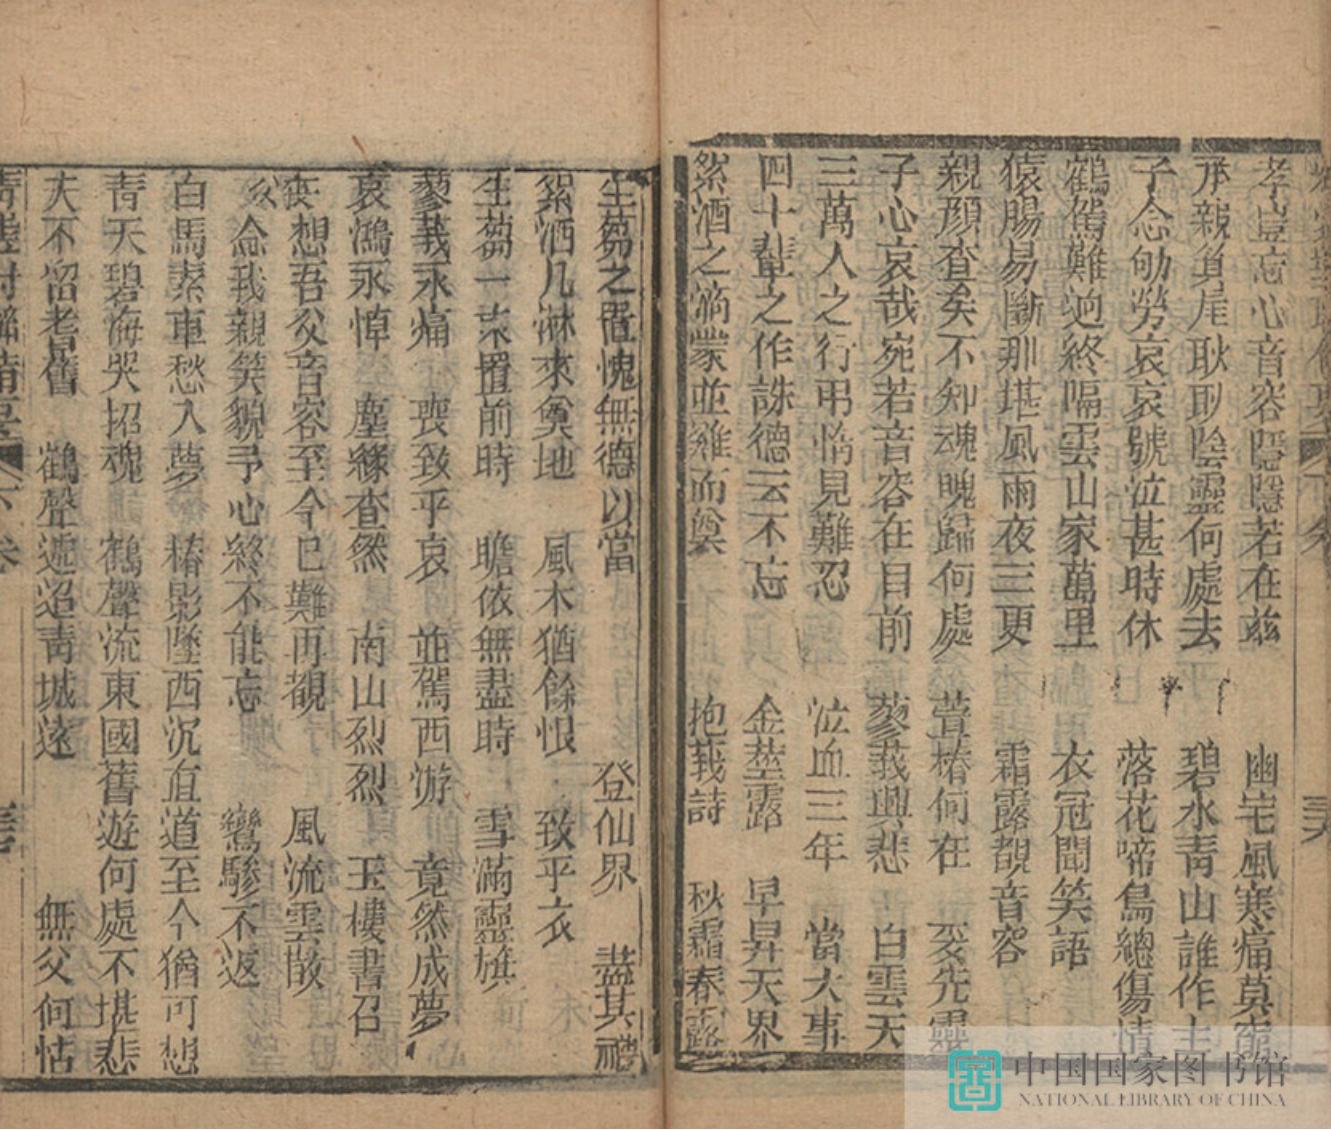 孝豈忘心音容隱隱若在茲 幽宅風寒痛莫
承親箕尾耿耿陰靈何處去 碧水青山誰作主
子念劬勞哀哀號泣甚時休 落花啼鳥總傷情
鶴駕難迎終隔雲山家萬里 衣冠聞笑語
猿腸易斷那堪風雨夜三更 霜露覩音容
親顏杳矣不知魂魄歸何處 萱椿何在 妥先靈
子心哀哉宛若音容在目前 蓼莪興悲 白雲天
三萬人之行弔惰見難忍 泣血三年 當大事
四十輩之作誄德云不忘 金莖露 早昇天界
絮酒之滴蒙並雞而奠 抱莪詩 秋霜春露
生芻之置愧無德以當 登仙界 盡其禮
絮酒几淋來奠地 風木猶餘恨 致乎衣
生芻一束置前時 瞻依無盡時 雪滿靈旗
蓼莪永痛 喪致乎哀 並駕西游 竟然成夢
哀鴻永悼 塵緣杳然 南山烈烈 玉樓書召
喪 想吾父音容至今已難再覩 風流雲散
父 念我親笑貌予心終不能忘 鸞驂不返
白馬素車愁入夢 椿影墜西沉直道至今猶可想
青天碧海哭招魂 鶴聲流東國舊遊何處不堪悲
天不留耆舊 鶴聲遞迢青城遠 無父何怙
卷
中国国家图书馆
NATIONAL LIBRARY OF CHINA